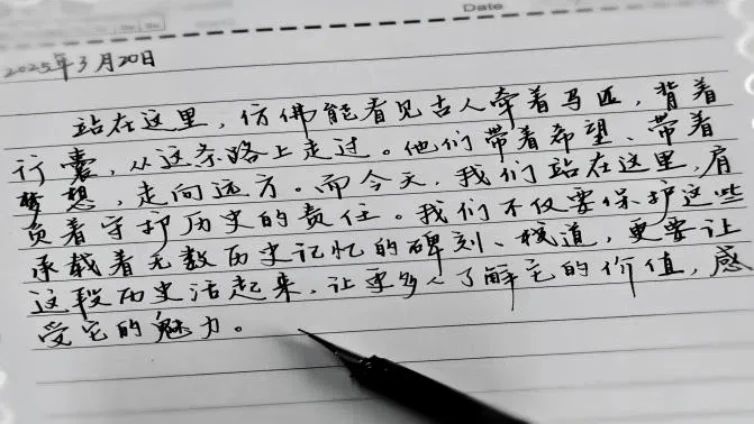 Date
2025年3月20日
站在这里，仿佛能看见古人牵着马匹，背着
行囊，从这条路上走过。他们带着希望、带着
梦想，走向远方。而今天，我们站在这里，肩
负着守护历史的责任。我们不仅要保护这些
承载着无数历史记忆的碑刻、栈道，更要让
这段历史活起来，让更多人了解它的价值，感
受它的魅力。